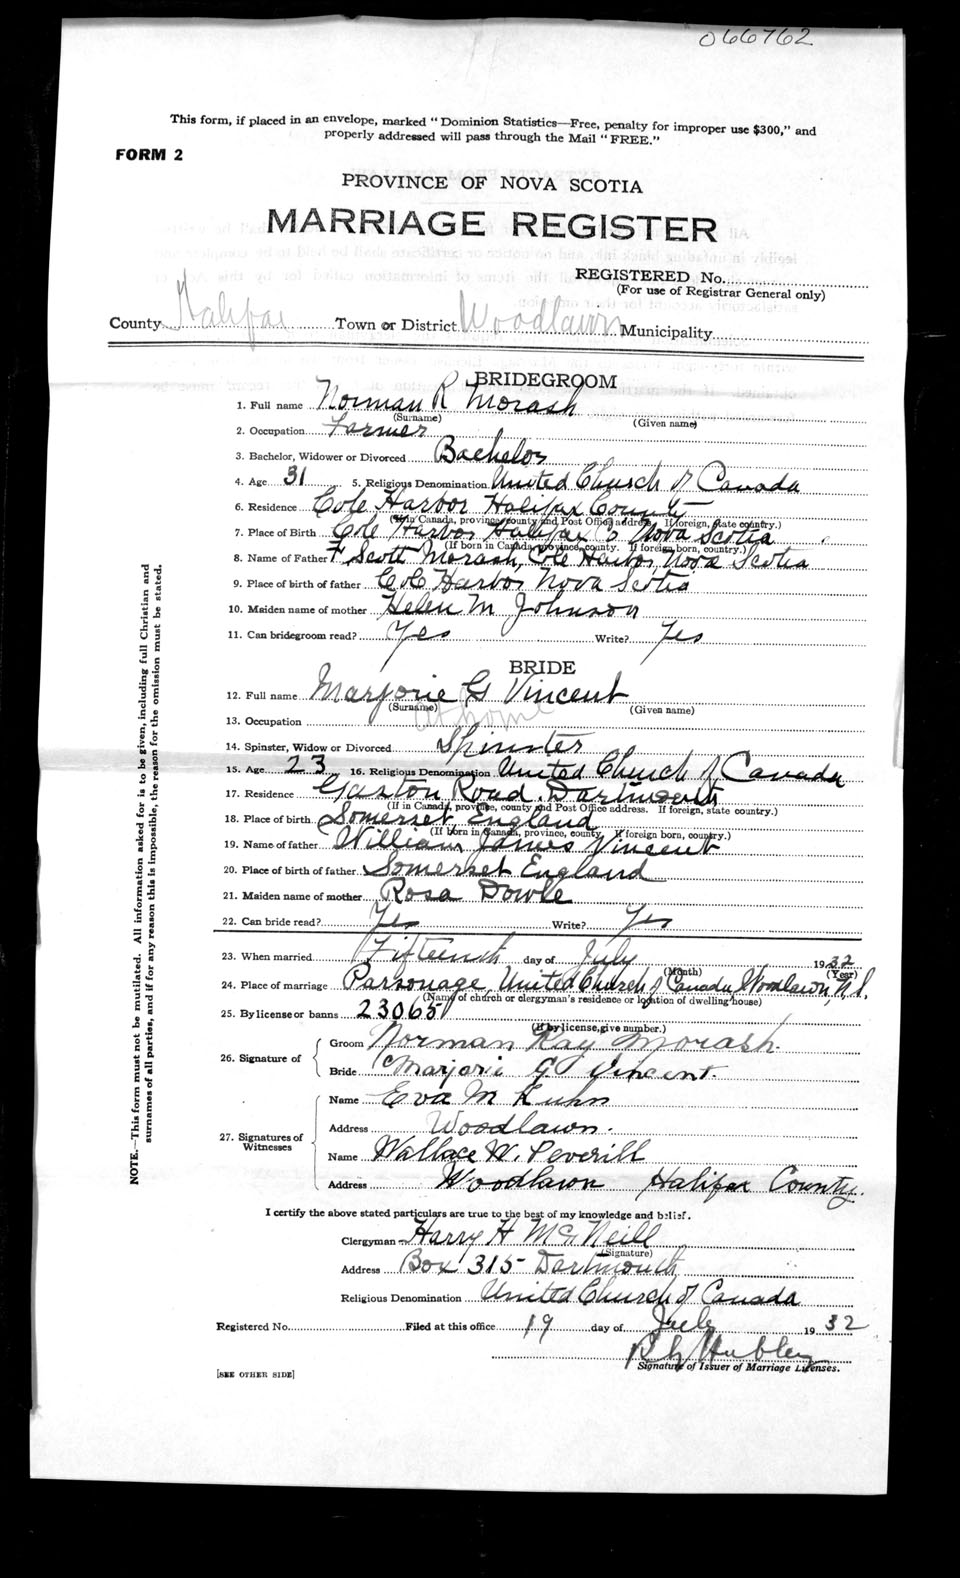 066762
This form, if placed in an envelope, marked "Dominion Statistics—Free, penalty for improper use $300," and
properly addressed will pass through the Mail "FREE."
FORM 2
PROVINCE OF NOVA SCOTIA
MARRIAGE REGISTER
REGISTERED No.
(For use of Registrar General only)
County Halifax Town or District Woodlawn Municipality
BRIDEGROOM
1. Full name Norman R Morash
(Surname) (Given name)
2. Occupation Farmer
3. Bachelor, Widower or Divorced Bachelor
4. Age 31 5. Religious Denomination United Church of Canada
6. Residence Cole Harbor Halifax County
(If in Canada, province, county and Post Office address. If foreign, state country.)
7. Place of Birth Cole Harbor Halifax Co Nova Scotia
(If born in Canada, province, county. If foreign born, country.)
8. Name of Father F Scott Morash, Cole Harbor, Nova Scotia
9. Place of birth of father Cole Harbor Nova Scotia
10. Maiden name of mother Helen M Johnson
11. Can bridegroom read? Yes Write? Yes
BRIDE
12. Full name Marjorie G Vincent
(Surname) (Given name)
13. Occupation at home
14. Spinster, Widow or Divorced Spinster
15. Age 23 16. Religious Denomination United Church of Canada
17. Residence Gaston Road, Dartmouth
(If in Canada, province, county and Post Office address. If foreign, state country.)
18. Place of birth Somerset England
(If born in Canada, province, county. If foreign born, country.)
19. Name of father William James Vincent
20. Place of birth of father Somerset England
21. Maiden name of mother Rosa Dowle
22. Can bride read? Yes Write? Yes
23. When married Fifteenth day of July 1932
(Month) (Year)
24. Place of marriage Parsonage, United Church of Canada, Woodlawn N.S.
(Name of church or clergyman's residence or location of dwelling house)
25. By license or banns 23065
(If by license, give number.)
26. Signature of
Groom Norman Ray Morash
Bride Marjorie G. Vincent.
27. Signatures of Witnesses
Name Eva M Kuhn
Address Woodlawn.
Name Wallace W. Peverill
Address Woodlawn Halifax County.
I certify the above stated particulars are true to the best of my knowledge and belief.
Clergyman Harry H McNeill
(Signature)
Address Box 315 Dartmouth
Religious Denomination United Church of Canada
Registered No. Filed at this office 19 day of July 1932
Hubley
Signature of Issuer of Marriage Licenses.
[SEE OTHER SIDE]
NOTE.—This form must not be mutilated. All information asked for is to be given, including full Christian and
surnames of all parties, and if for any reason this is impossible, the reason for the omission must be stated.